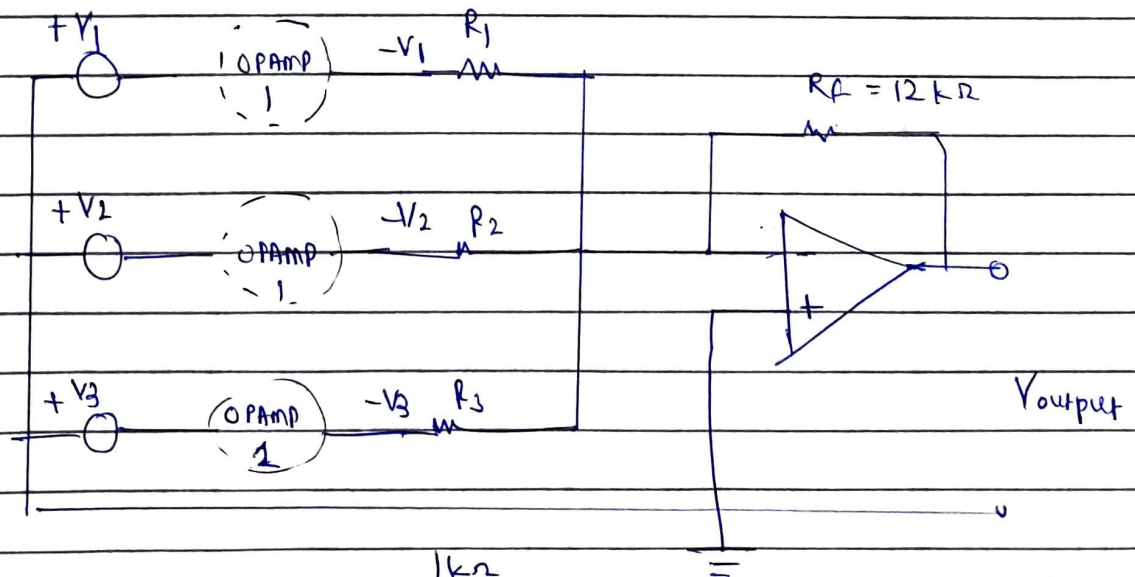 +V1
OPAMP
1
-V1
R1
Rf = 12 kΩ
+V2
OPAMP
1
-V2
R2
-
+
+V3
OPAMP
1
-V3
R3
Voutput
1kΩ